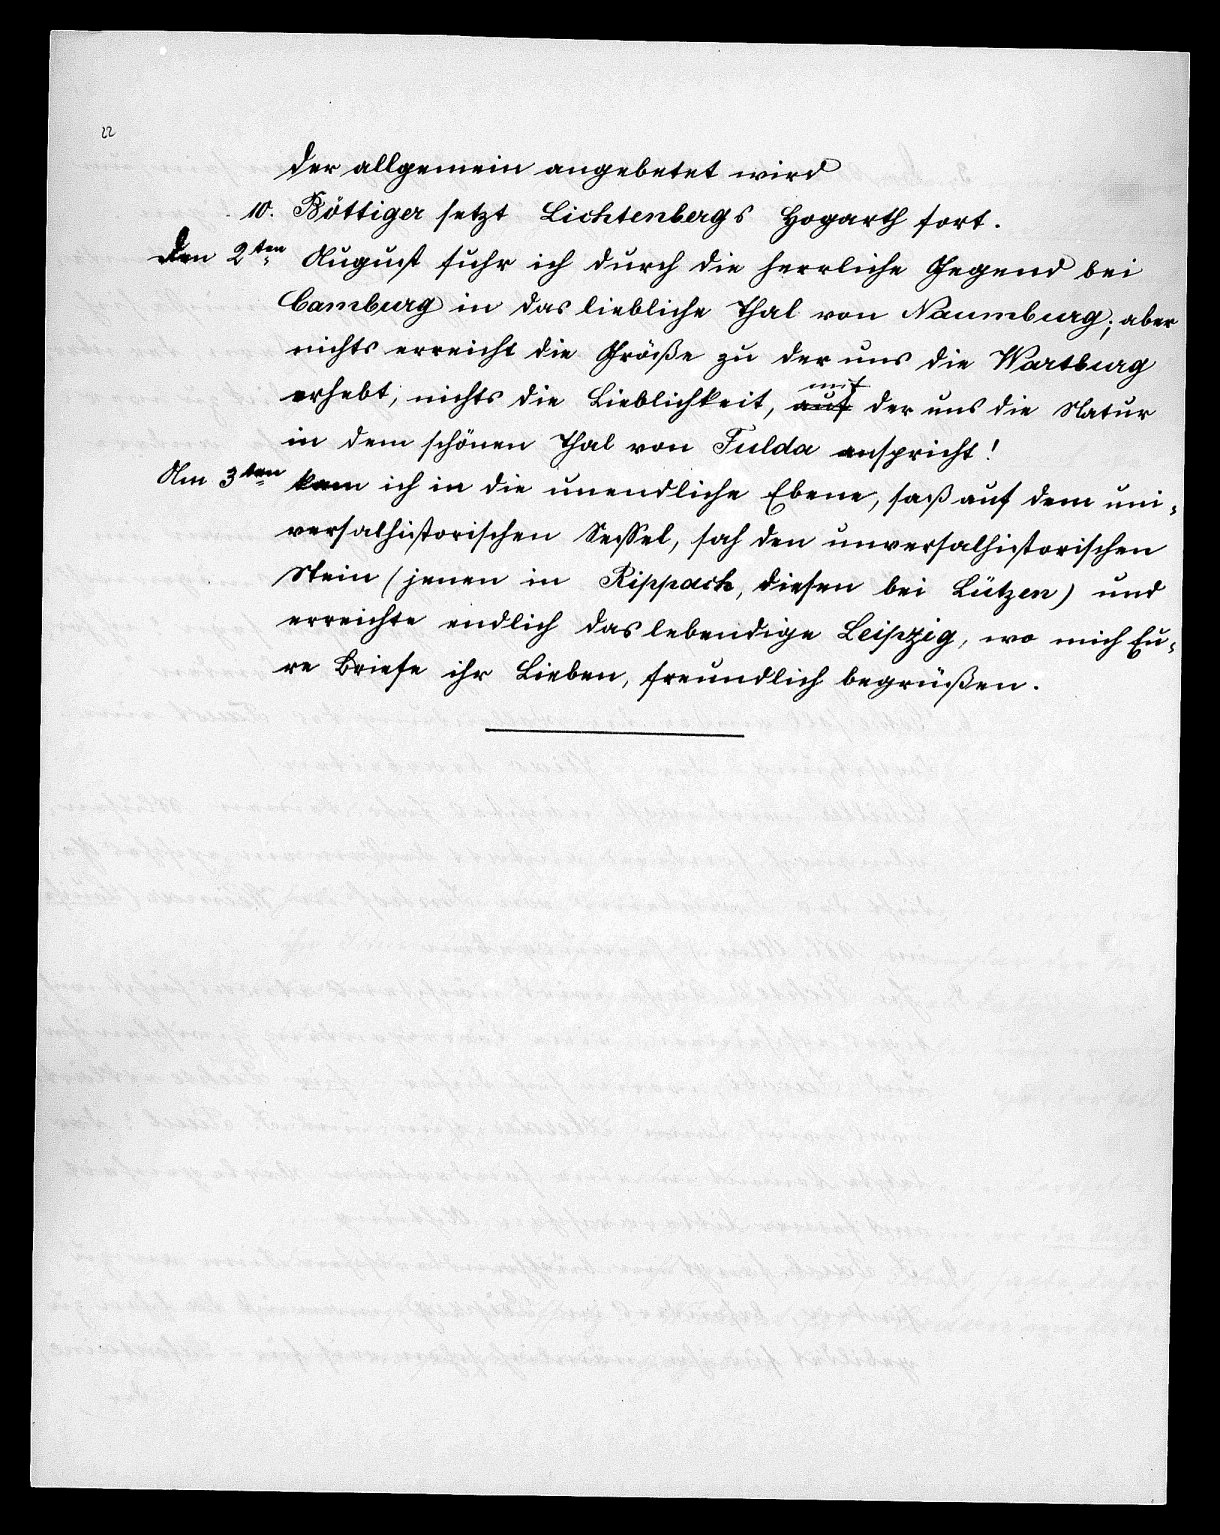 22
der allgemein angebetet wird
10. Böttiger setzt Lichtenbergs Hogarth fort.
Den 2ten August fuhr ich durch die herrliche Gegend bei
Camburg in das liebliche Thal von Naumburg; aber
nichts erreicht die Größe zu der uns die Wartburg
mit
erhebt, nichts die Lieblichkeit, auf der uns die Natur
in dem schönen Thal von Fulda anspricht!
Am 3ten kam ich in die unendliche Ebene, saß auf dem uni-
versalhistorischen Sessel, sah den unversalhistorischen
Stein (jenen in Rippach, diesen bei Lützen) und
erreichte endlich das lebendige Leipzig, wo mich Eu-
re Briefe ihr Lieben, freundlich begrüßen.